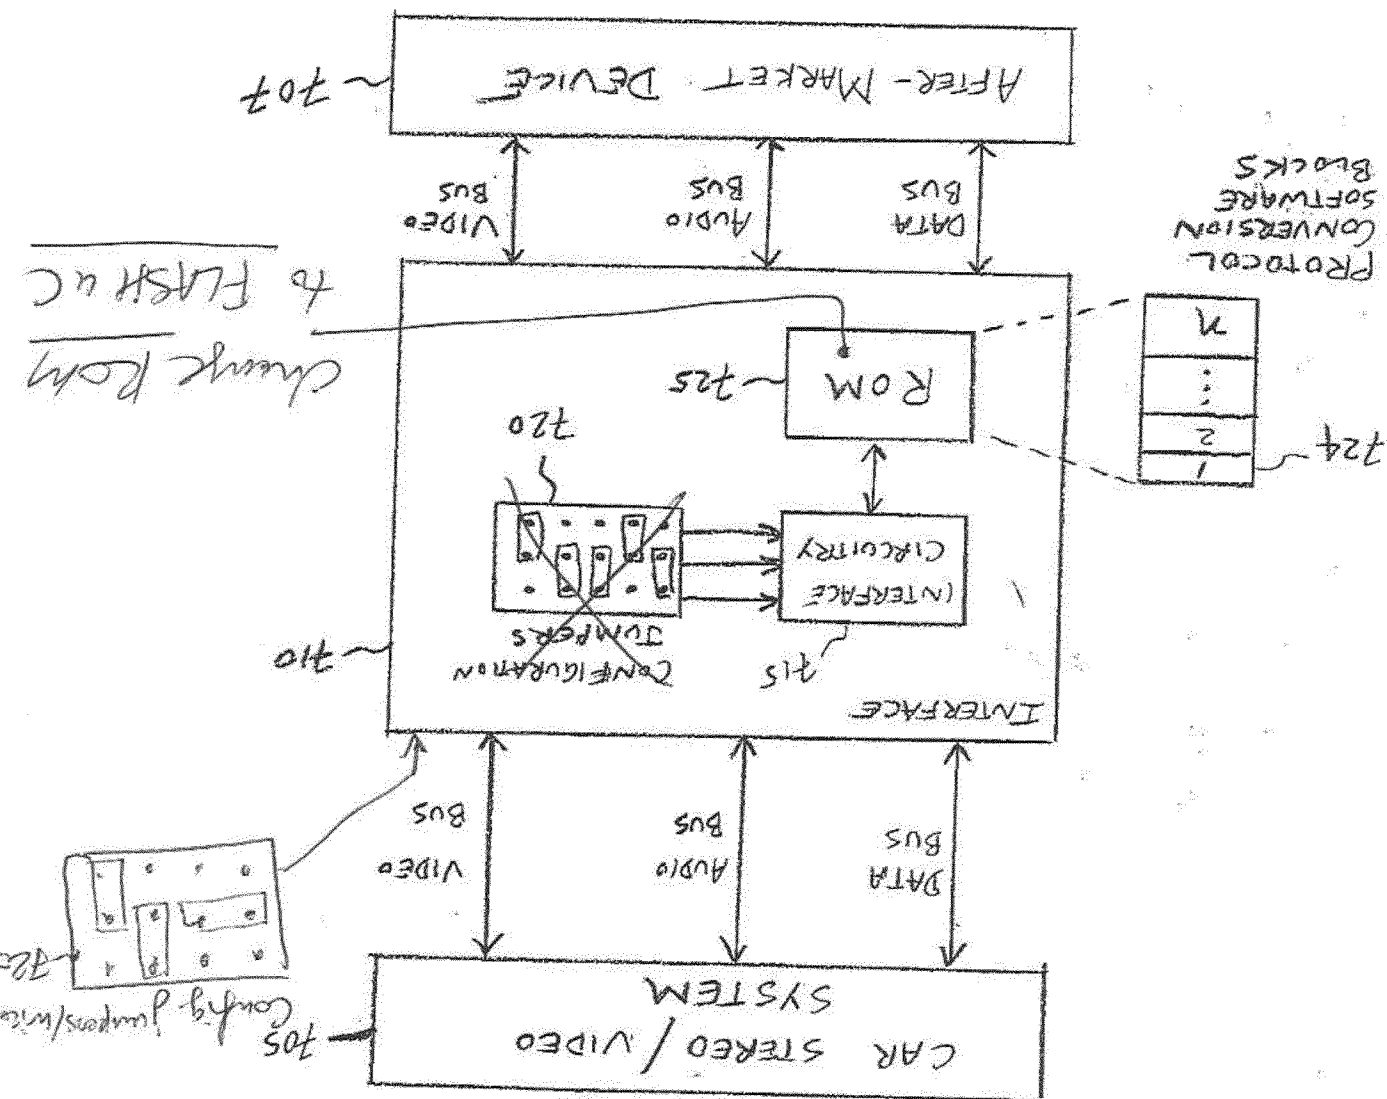 CAR STEREO / VIDEO
SYSTEM
705
Config. jumpers/
DATA
BUS
AUDIO
BUS
VIDEO
BUS
INTERFACE
710
715
INTERFACE
CIRCUITRY
CONFIGURATION
JUMPERS
720
724
1
2
n
PROTOCOL
CONVERSION
SOFTWARE
BLOCKS
ROM
725
Change ROM
to FLASH uC
DATA
BUS
AUDIO
BUS
VIDEO
BUS
AFTER-MARKET DEVICE
707